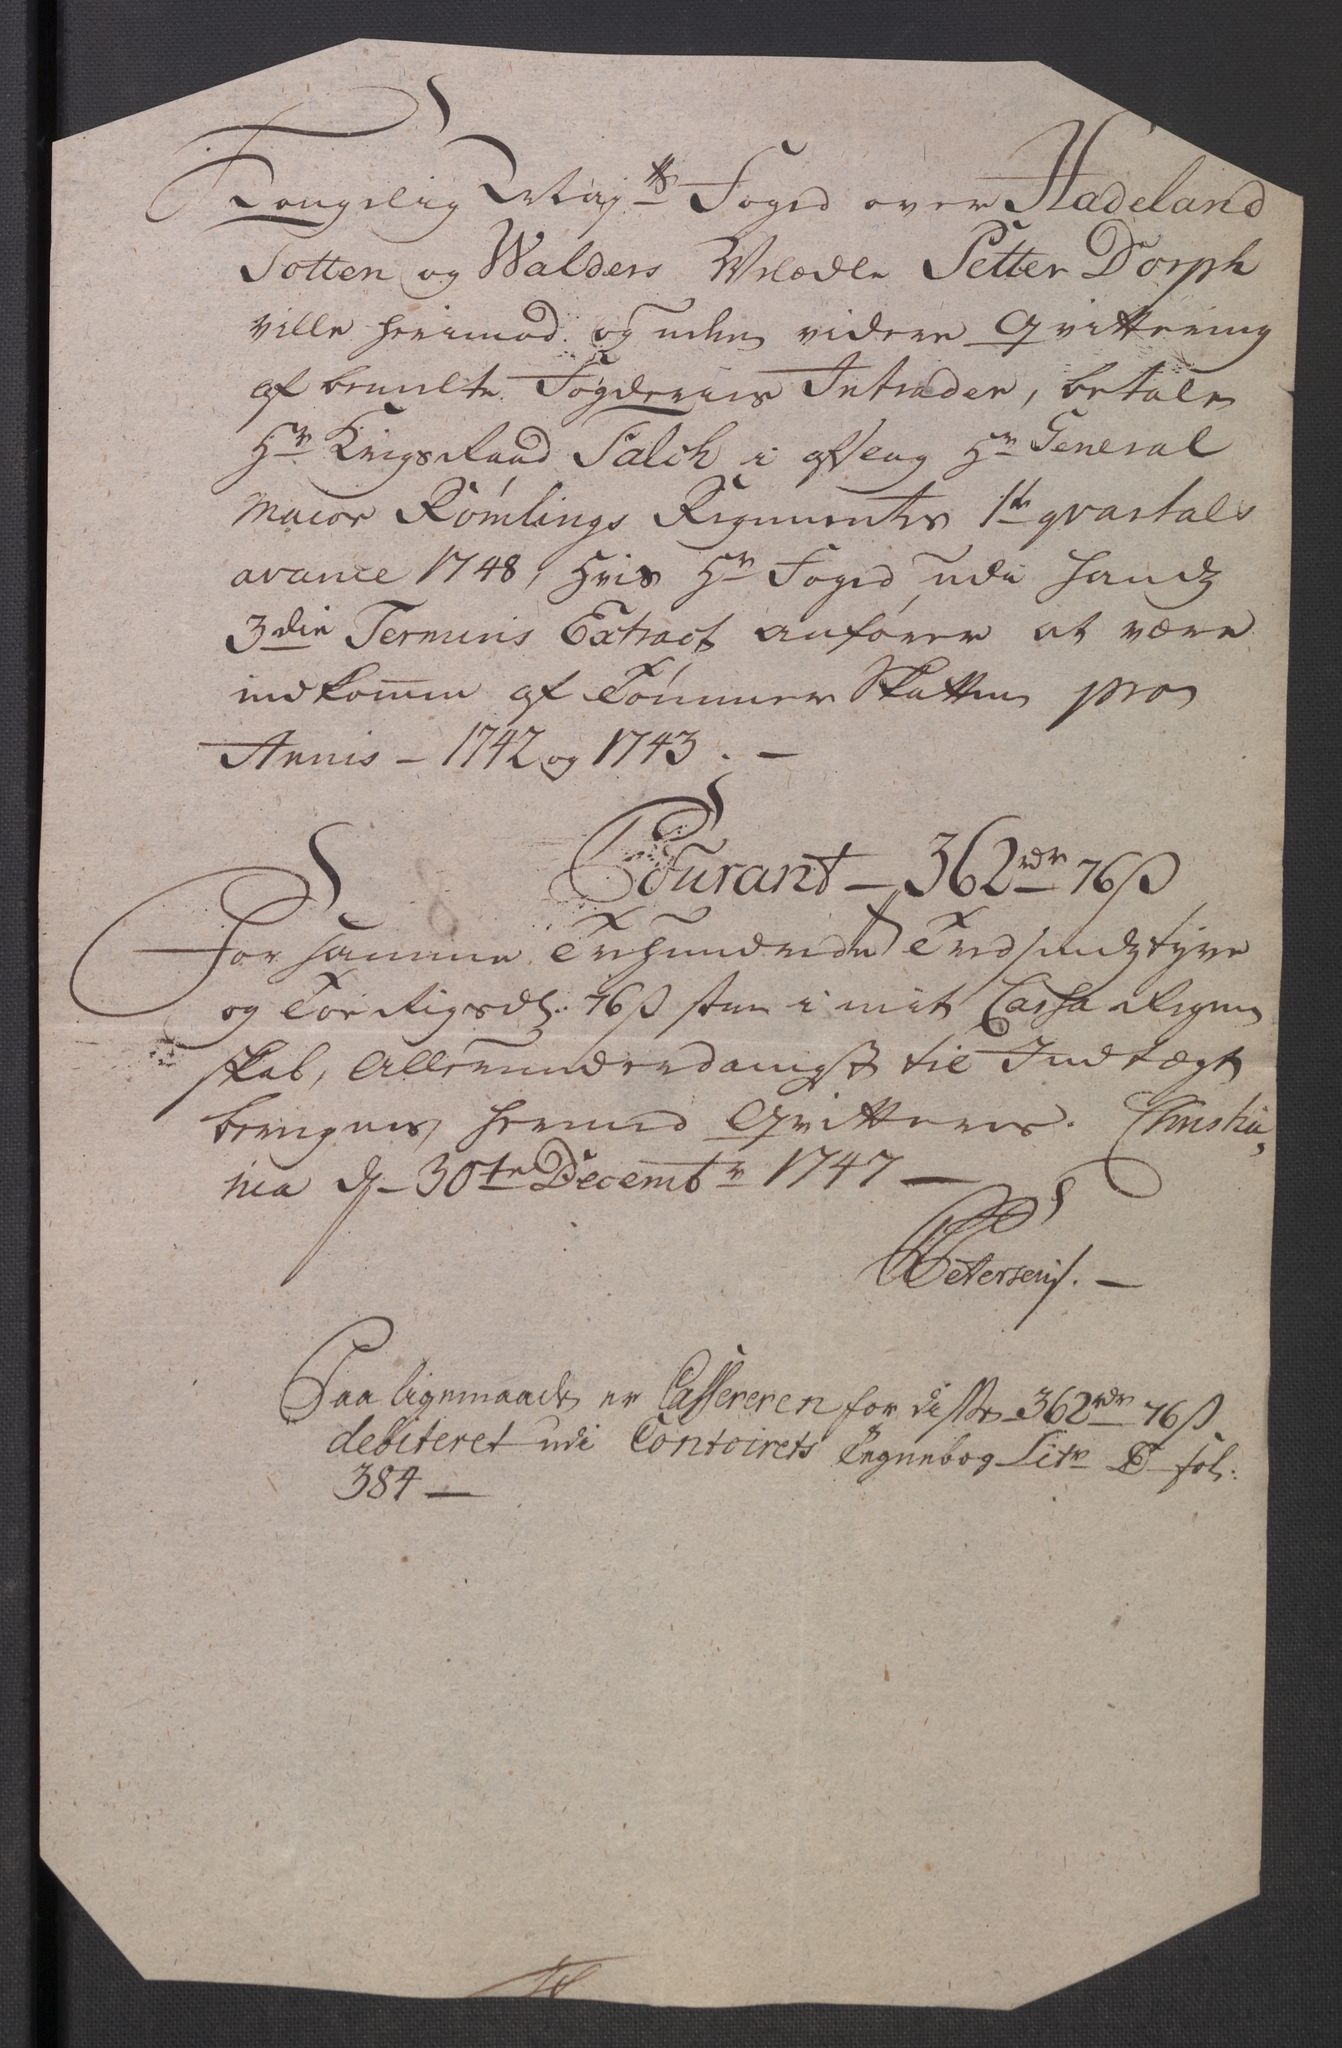 Kongelig Mayts Foged over Hadeland
Totten og Walders Welædle Petter Dorph
ville herimod og uden videre Qvittering
af bemelte Fogderies Intrader, betale
Hr Krigs Raad Falch i afseng Hr General
Maior Rømlings Regimentes 1te qvartals
avance 1748, hvis Hr Foged udi hands
3die Termins Extract anfører at være
indkomen af Tømmer Skatten pro
Annis - 1742 og 1743. -
Courant - 362 rdr 76 ß
For samme Trehundrede Tredsindztyve
og Toe Rigsdl. 76 ß som i mit Cassa Regen
skab, Allerunderdanigst til Indtægt
bringes, hermed Qvitteres. Christia,,
nia d - 30te Decembr 1747 -
Petersen. -
Paa ligemaade er Cassereren for disse 362 rdr 76 ß
debiteret udi Contoirets Regnebog Litr B fol:
384 -